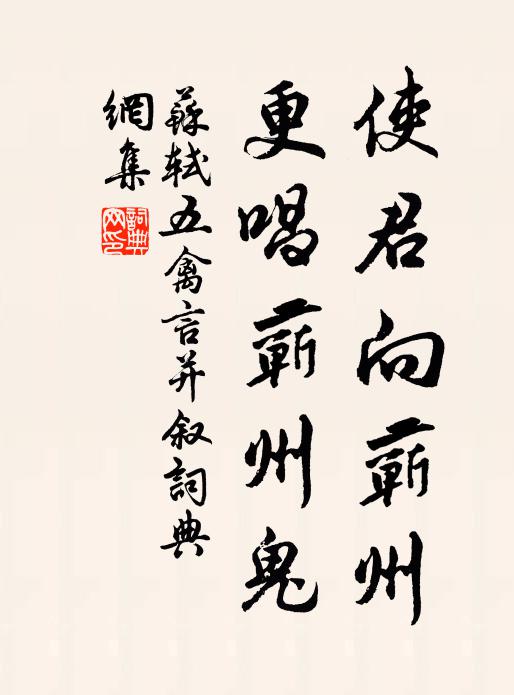 使君向蘄州
更唱蘄州鬼
蘇軾五禽言并叙詞典
網集
詞典
网印